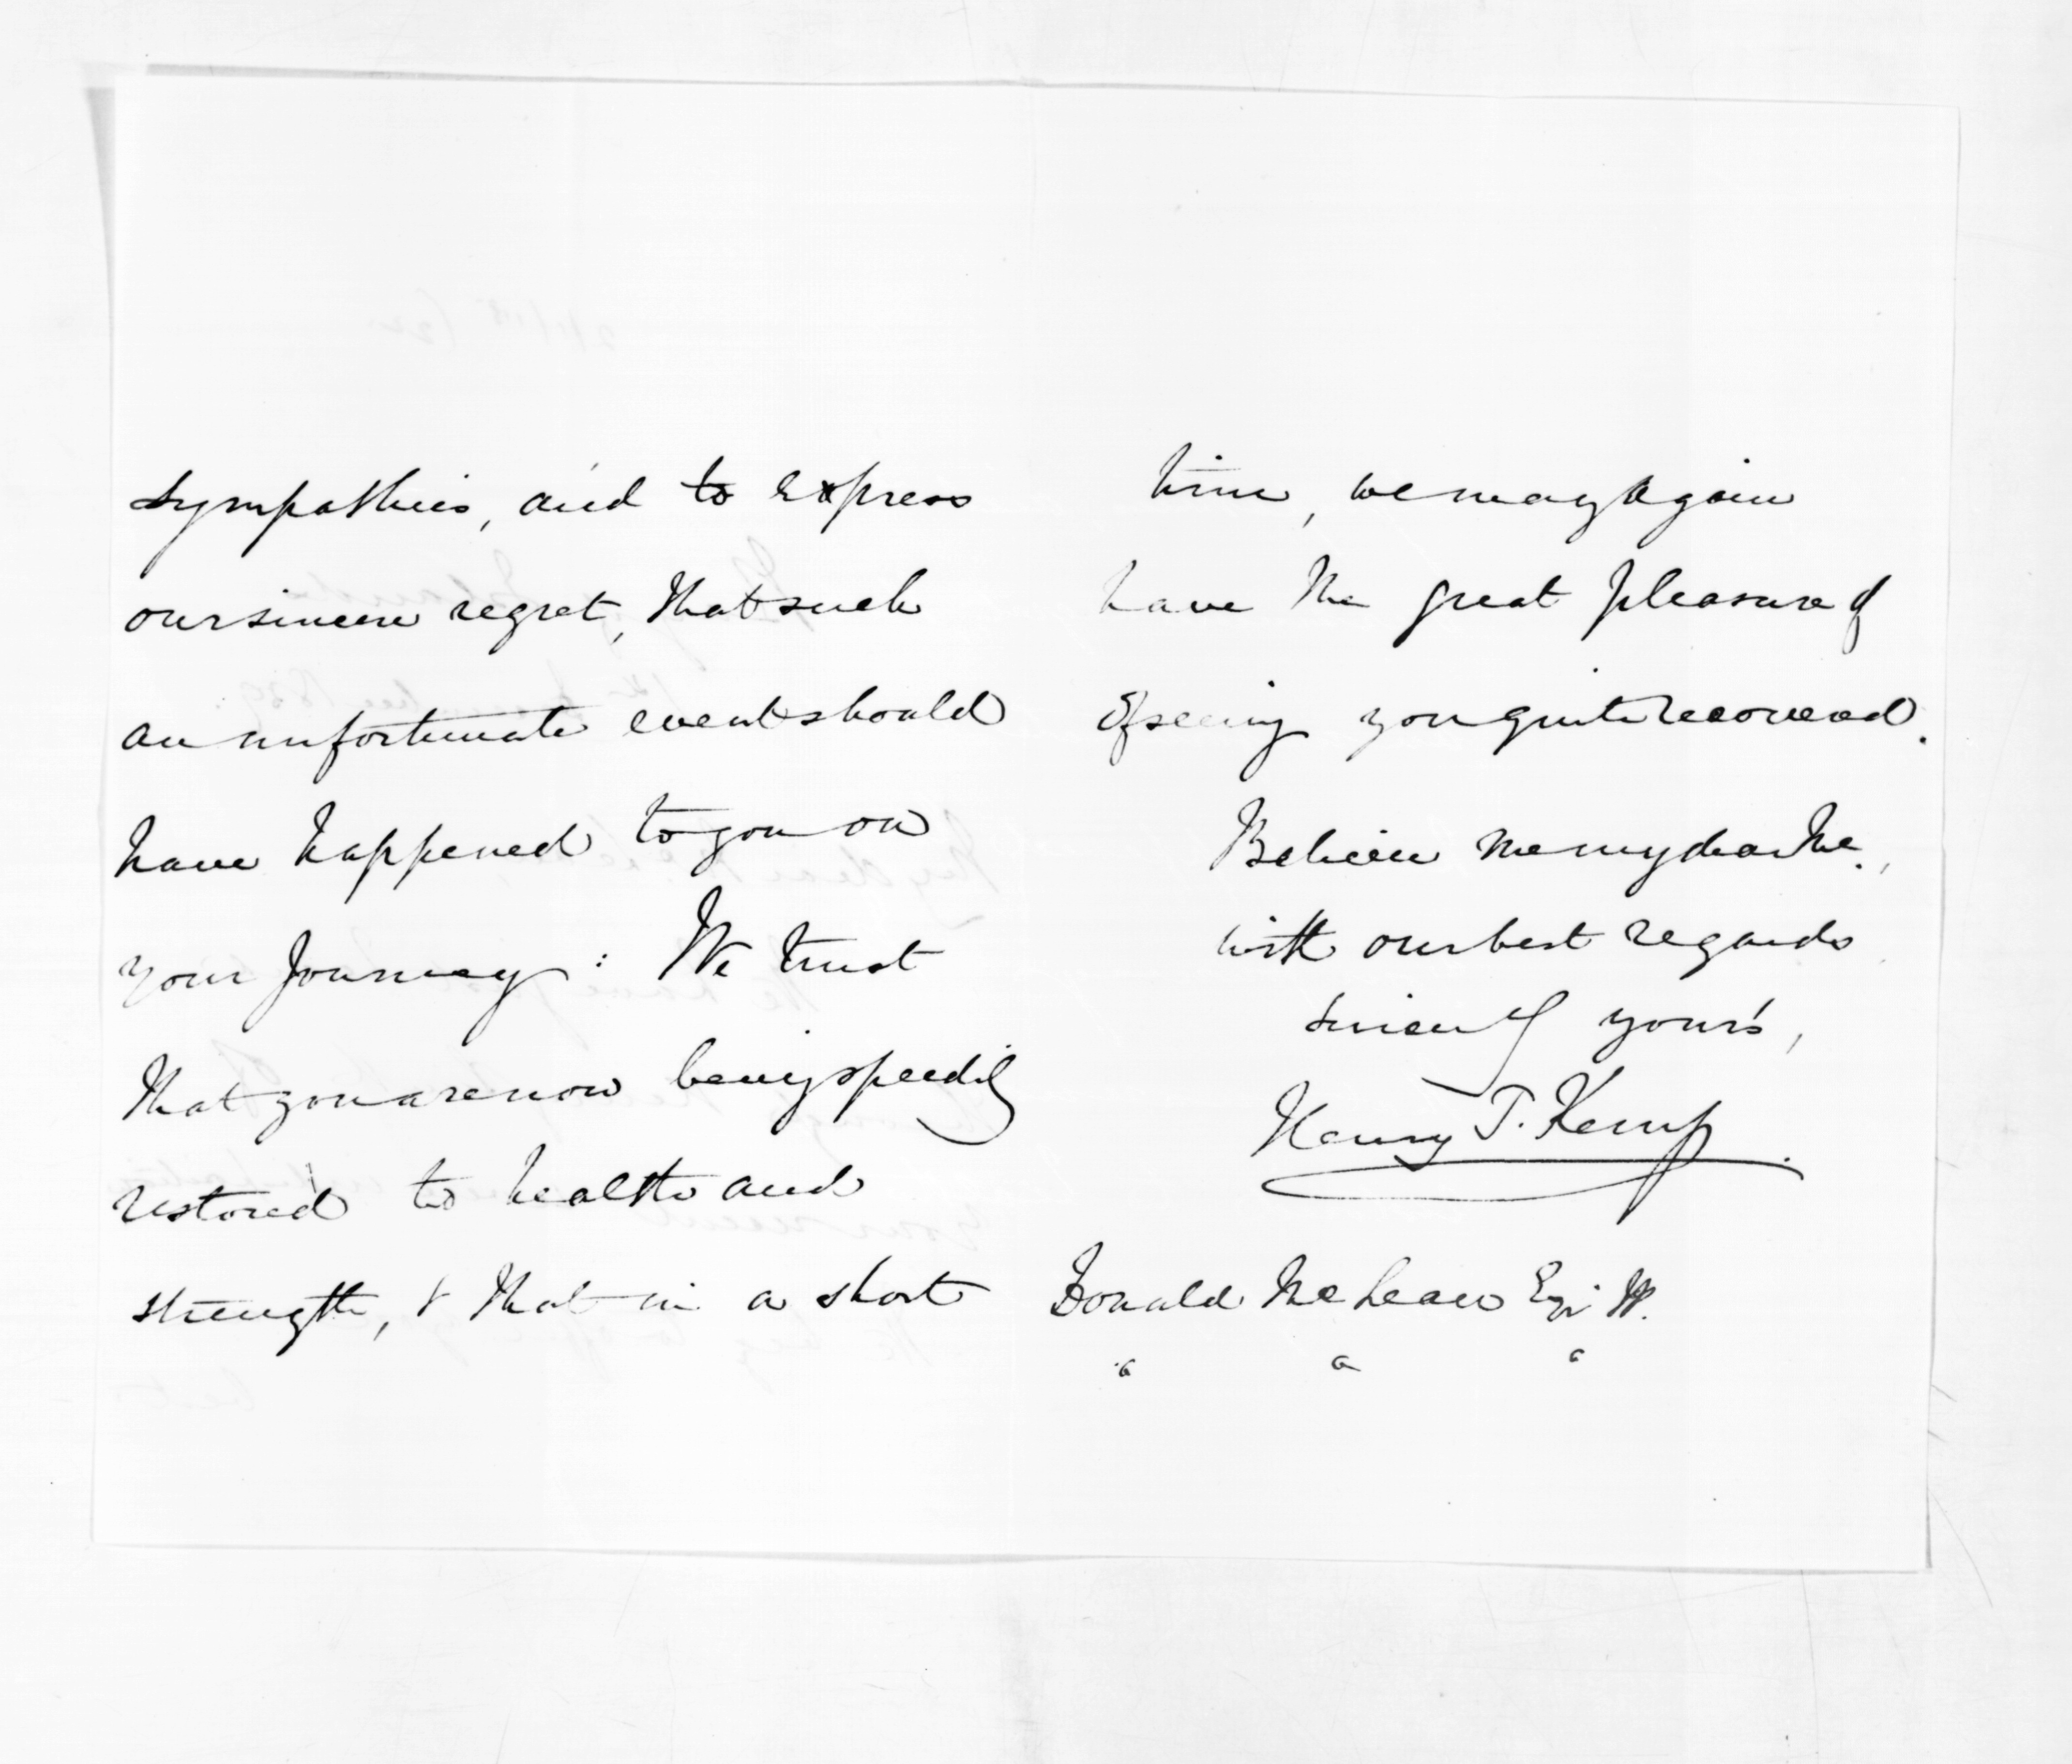 sympathies, and to express
our sincere regret, that such
an unfortunate event should
have happened to you on
your Journey: We trust
that you are now being speedily
restored to health and
strength, & that in a short
time, we may again
have the great pleasure of
of seeing you quite recovered.
Believe me my dear Mc.,
with our best regards
sincerely yours,
Henry T. Kemp.
Donald McLean Esqr.
" " "